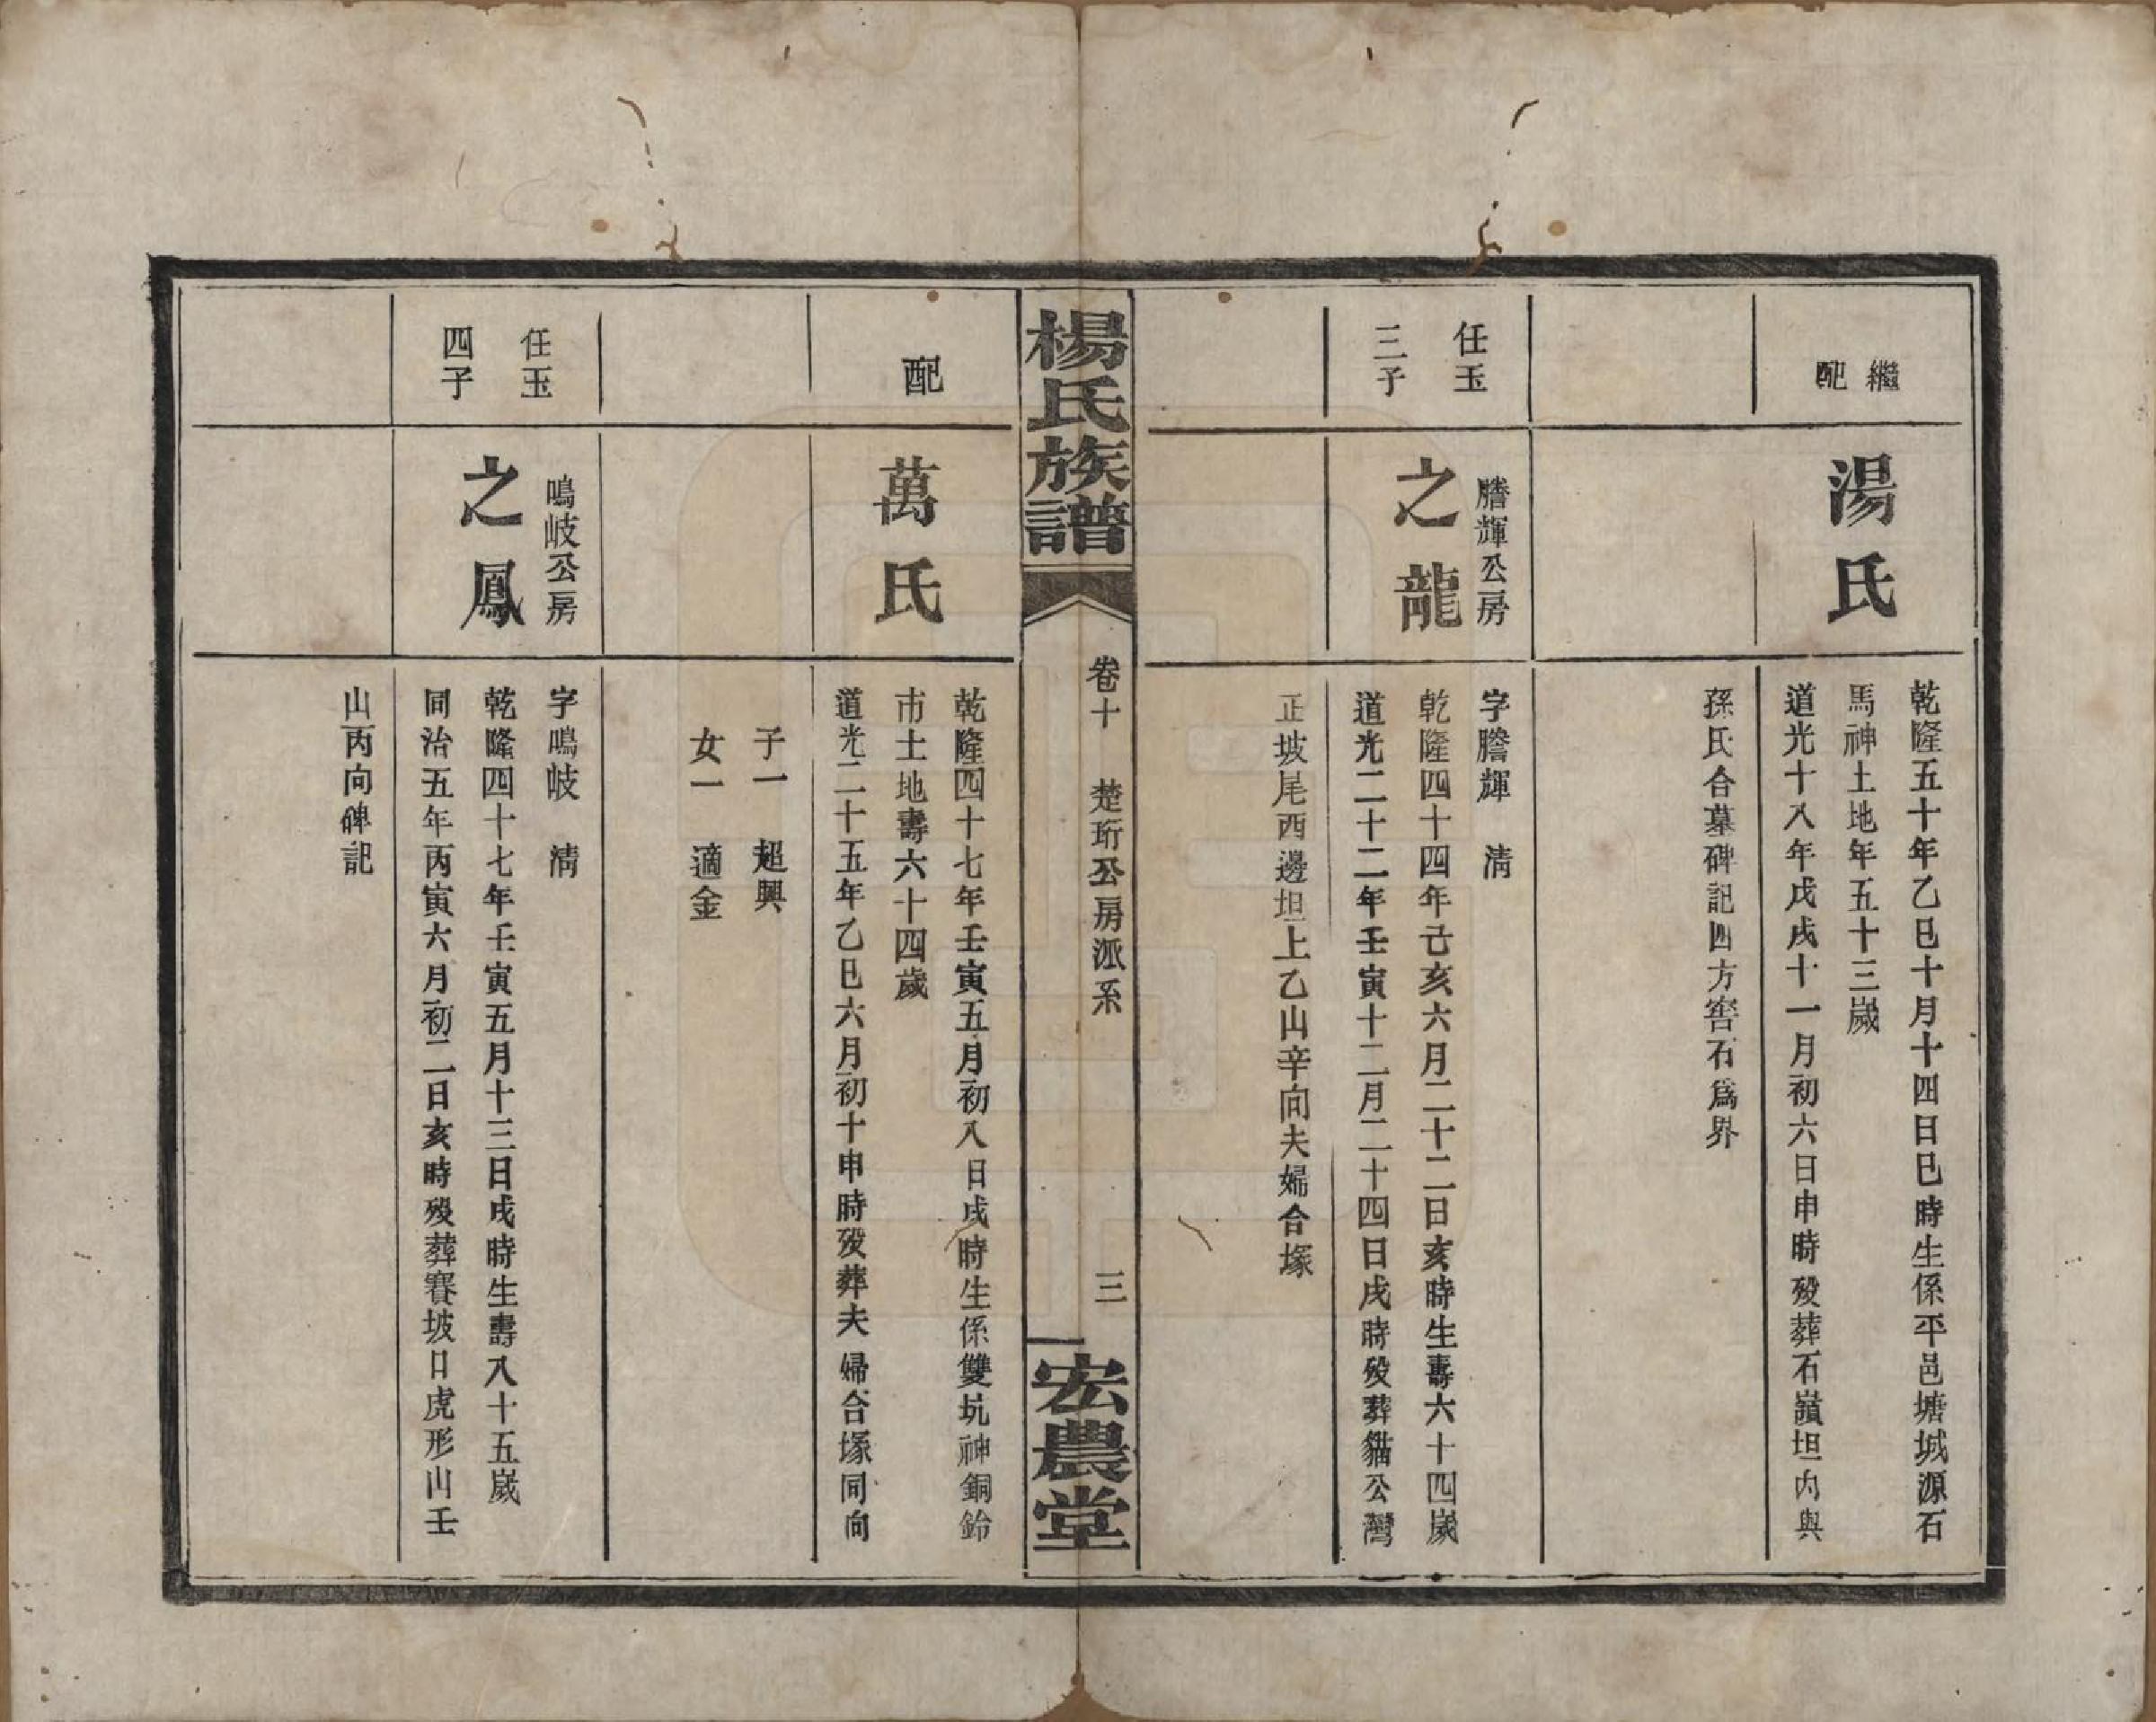 繼
配
湯氏
乾隆五十年乙巳十月十四日巳時生係平邑塘城源石
馬神土地年五十三歲
道光十八年戊戌十一月初六日申時歿葬石嶺坦內與
孫氏合墓碑記四方窖石爲界
任玉
三子
謄輝公房
之龍
字謄輝 清
乾隆四十四年己亥六月二十二日亥時生壽六十四歲
道光二十二年壬寅十二月二十四日戌時歿葬貓公灣
正坡尾西邊坦上乙山辛向夫婦合塚
楊氏族譜
卷十 楚珩公房派系
三
宏農堂
配
萬氏
乾隆四十七年壬寅五月初八日戌時生係雙坑神銅鈴
市土地壽六十四歲
道光二十五年乙巳六月初十申時歿葬夫婦合塚同向
子一 超興
女一 適金
任玉
四子
鳴岐公房
之鳳
字鳴岐 清
乾隆四十七年壬寅五月十三日戌時生壽八十五歲
同治五年丙寅六月初二日亥時歿葬賽坡日虎形山壬
山丙向碑記